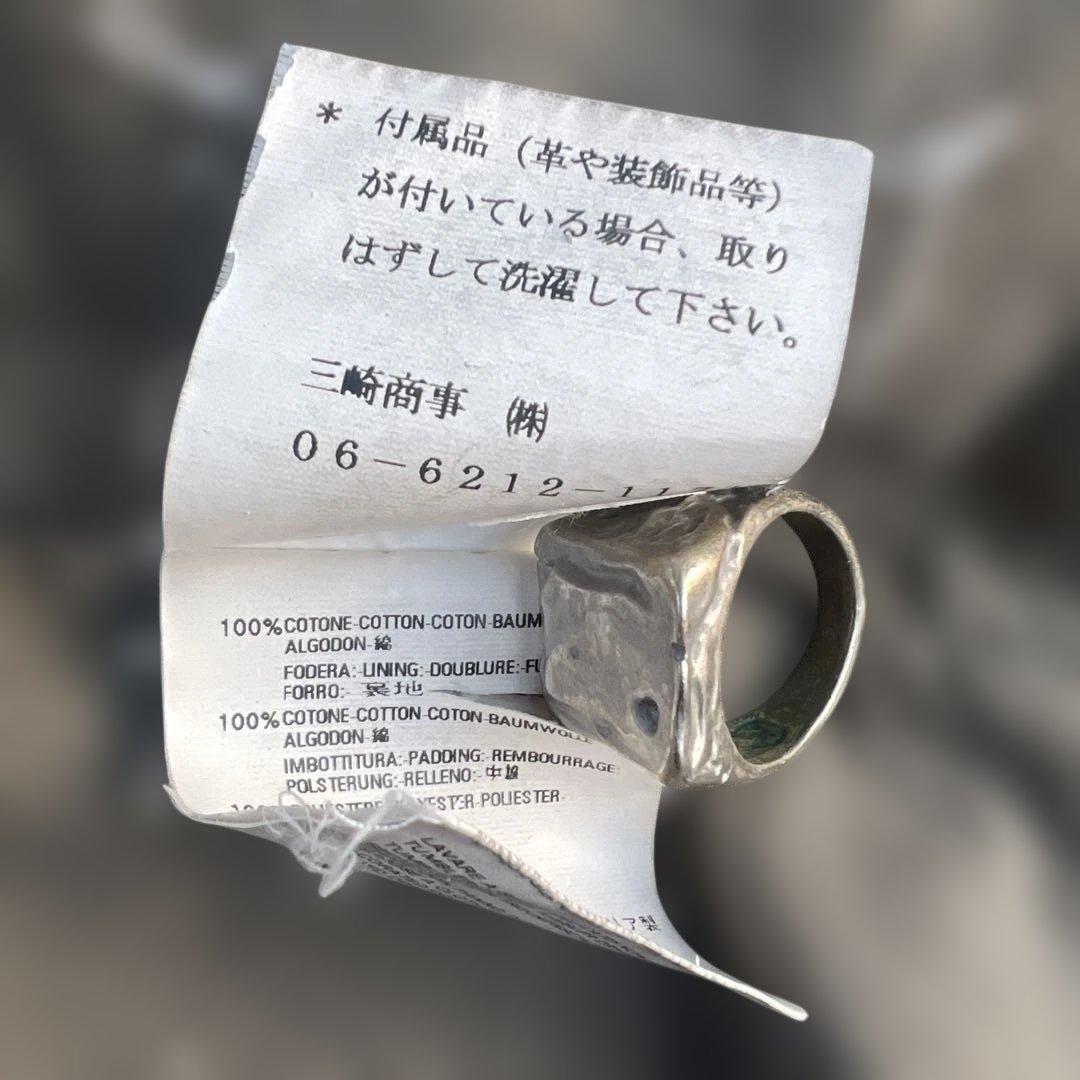 * 付属品 (革や装飾品等)
が付いている場合、取り
はずして洗濯して下さい。
三崎商事 ㈱
06-6212-11
100% COTONE-COTTON-COTON-BAUM
ALGODON-綿
FODERA:-LINING:-DOUBLURE:-FU
FORRO:- 裏地
100% COTONE-COTTON-COTON-BAUMWOLLE
ALGODON-綿
IMBOTTITURA:-PADDING:-REMBOURRAGE:
POLSTERUNG:-RELLENO:-中綿
POLIESTERE POLYESTER-POLIESTER-
LAVARE A